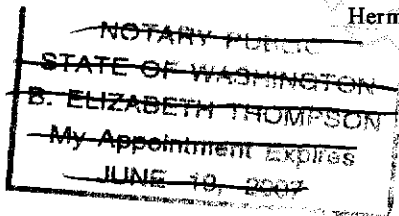 Herm
NOTARY PUBLIC
STATE OF WASHINGTON
B. ELIZABETH THOMPSON
My Appointment Expires
JUNE 19, 2007